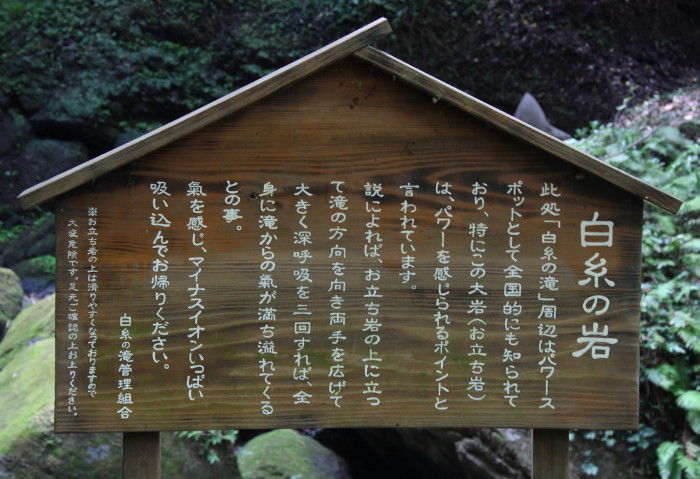 白糸の岩
此処「白糸の滝」周辺はパワース
ポットとして全国的にも知られて
おり、特にこの大岩（お立ち岩）
は、パワーを感じられるポイントと
言われています。
説によれば、お立ち岩の上に立っ
て滝の方向を向き両手を広げて
大きく深呼吸を三回すれば、全
身に滝からの氣が満ち溢れてくる
との事。
氣を感じ、マイナスイオンいっぱい
吸い込んでお帰りください。
白糸の滝管理組合
※お立ち岩の上は滑りやすくなっておりますので
大変危険です。足元ご確認の上お上りください。